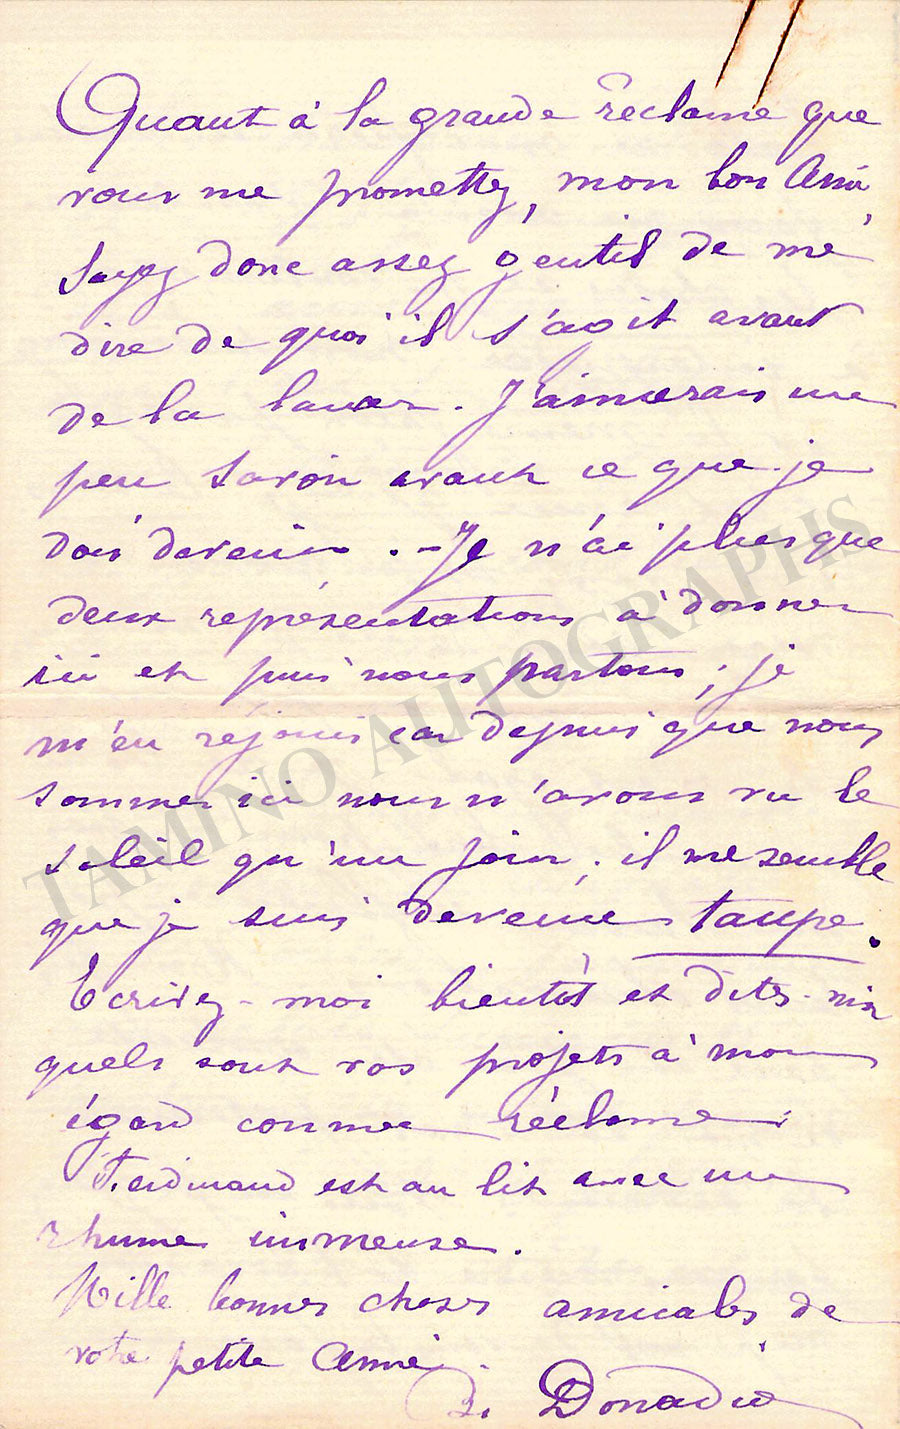 Quant à la grande réclame que
vous me promettez, mon bon Ami,
soyez donc assez gentil de me
dire de quoi il s'agit avant
de la lancer. J'aimerais un
peu savoir avant ce que je
dois devenir. — Je n'ai plus que
deux représentations à donner
ici et puis nous partons ; je
m'en réjouis car depuis que nous
sommes ici nous n'avons vu le
soleil qu'un jour ; il me semble
que je suis devenue taupe.
Ecrivez-moi bientôt et dites-moi
quels sont vos projets à mon
égard comme réclame.
Ferdinand est au lit avec un
rhume immense.
Mille bonnes choses amicales de
votre petite Amie.
B. Donadio
TAMINO AUTOGRAPHS